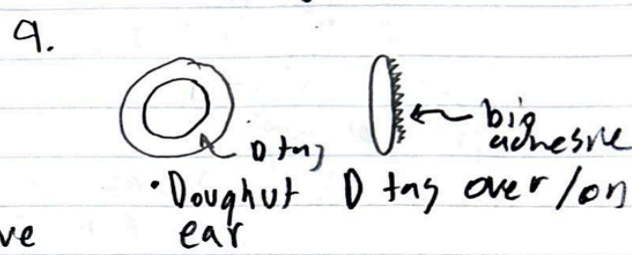 9.
D tag
big
adhesive
• Doughnut D tag over/on
ve ear